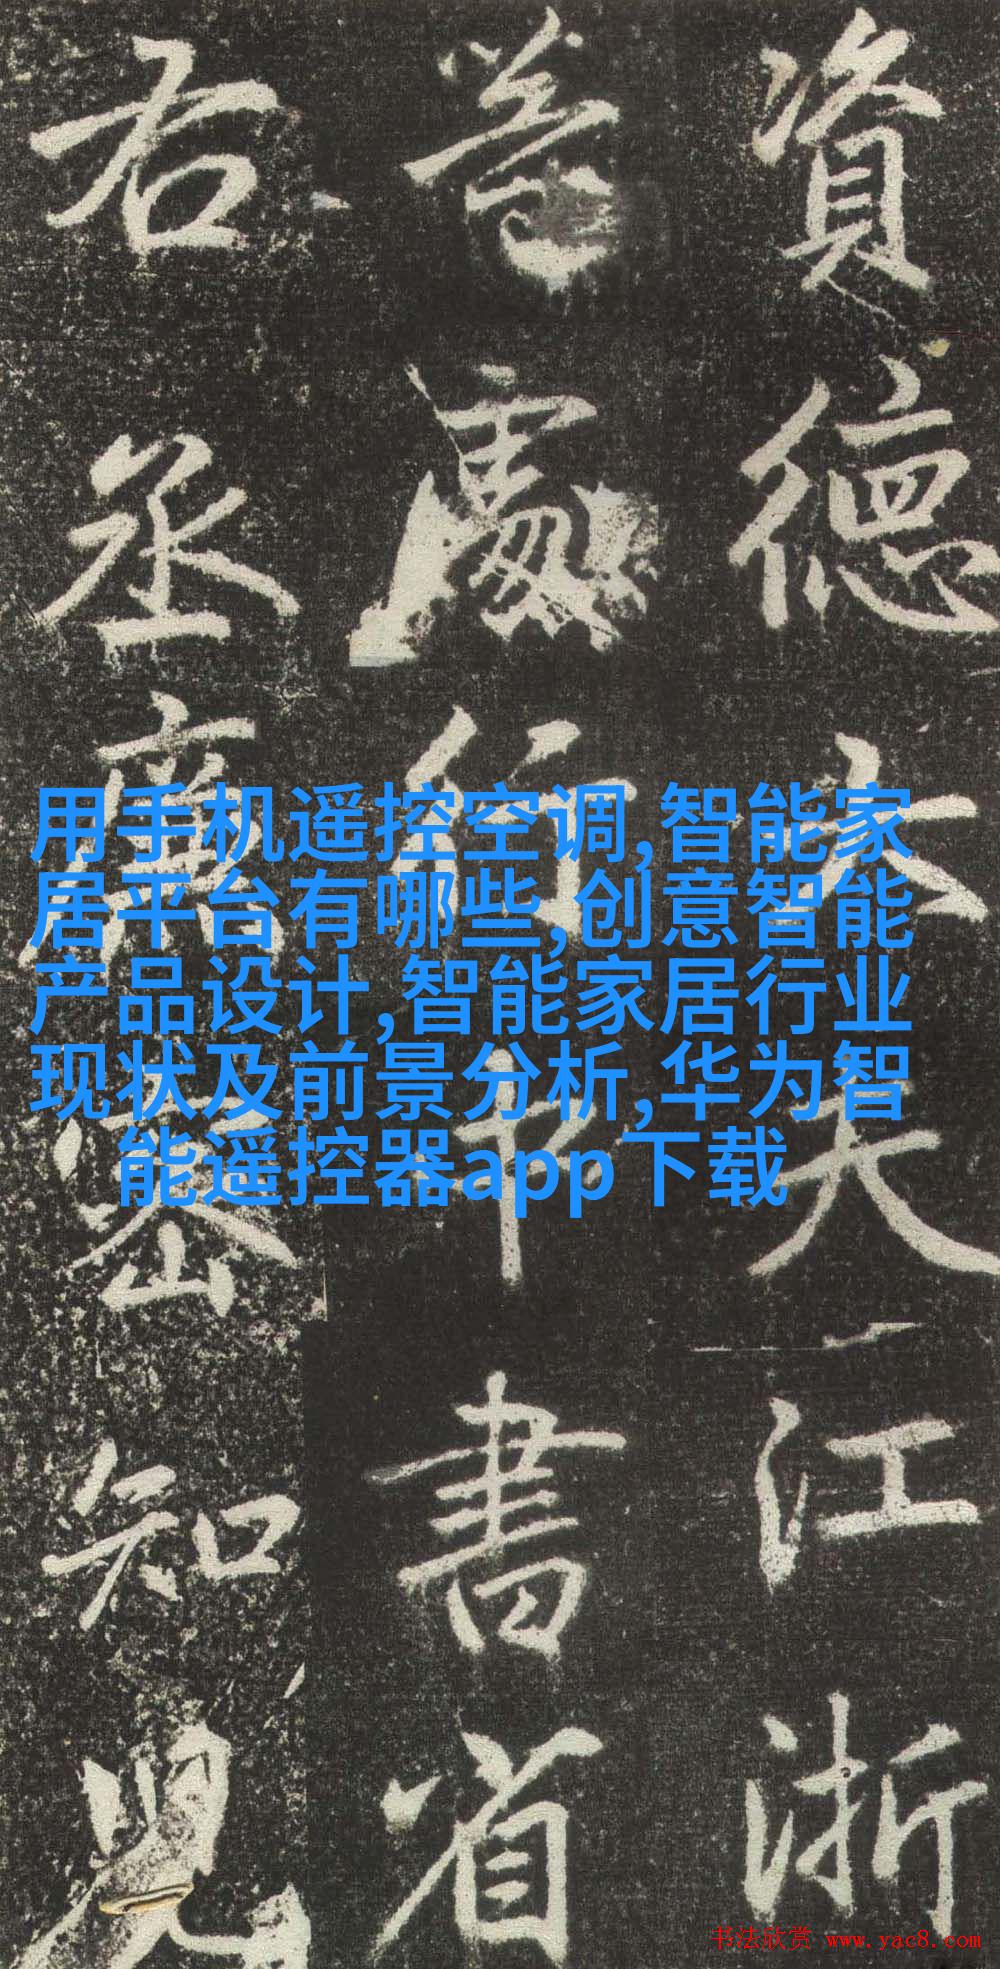 資德大夫江浙
等處行中書省
右丞廉密知兒
用手机遥控空调,智能家
居平台有哪些,创意智能
产品设计,智能家居行业
现状及前景分析,华为智
能遥控器app下载
书法欣赏 www.yac8.com